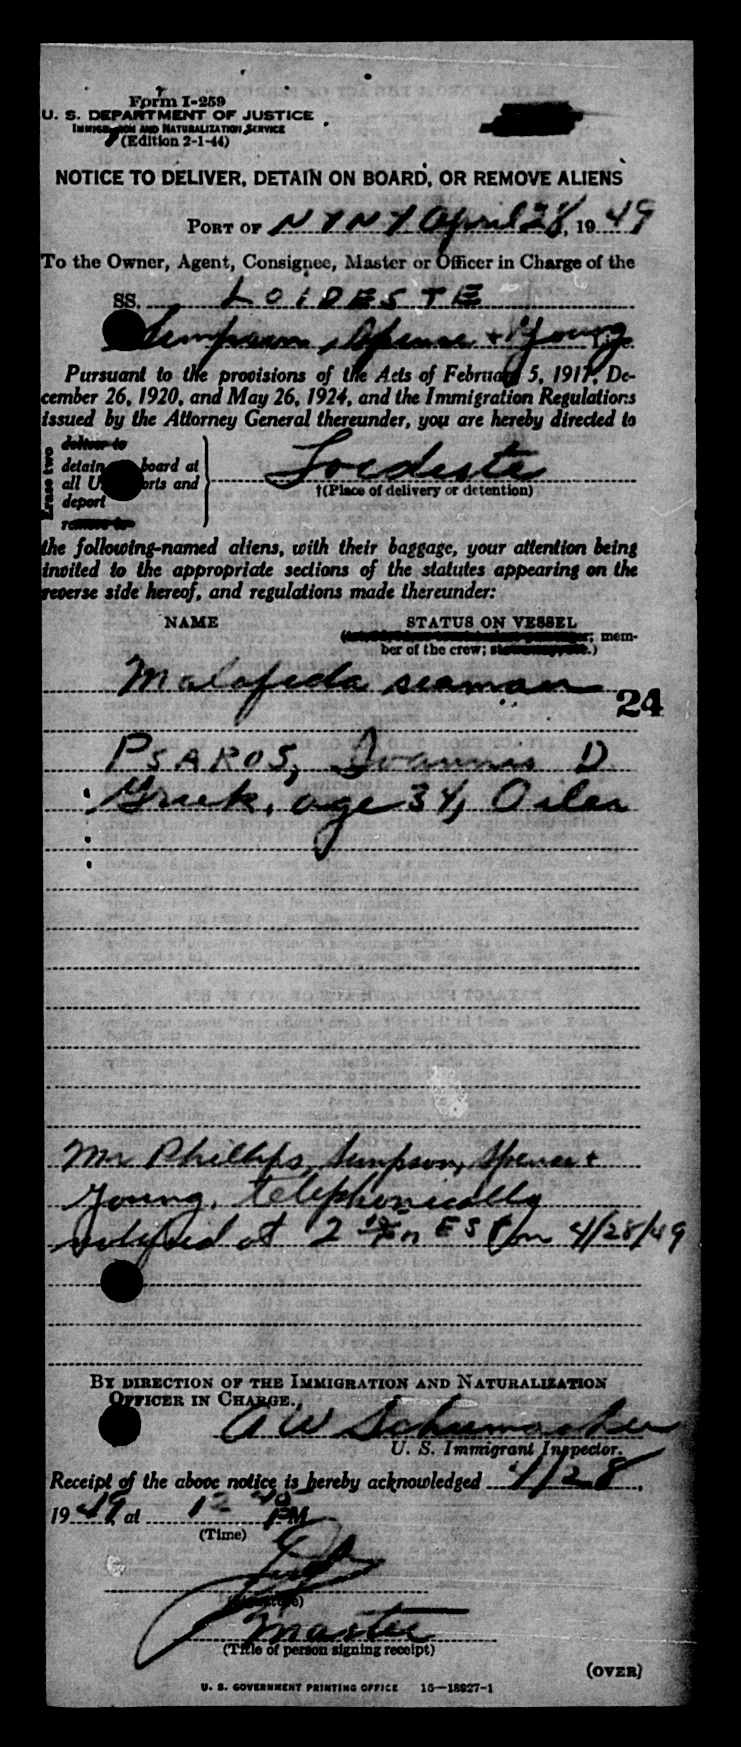 Form I-259
U. S. DEPARTMENT OF JUSTICE
IMMIGRATION AND NATURALIZATION SERVICE
(Edition 2-1-44)
NOTICE TO DELIVER, DETAIN ON BOARD, OR REMOVE ALIENS
PORT OF N Y N Y April 28, 19 49
To the Owner, Agent, Consignee, Master or Officer in Charge of the
SS. LOIDESTE
Simpson, Spence + Young
Pursuant to the provisions of the Acts of February 5, 1917, De-
cember 26, 1920, and May 26, 1924, and the Immigration Regulations
issued by the Attorney General thereunder, you are hereby directed to
Erase two
deliver to
detain board at
all U orts and
deport
remove to
Loideste
†(Place of delivery or detention)
the following-named aliens, with their baggage, your attention being
invited to the appropriate sections of the statutes appearing on the
reverse side hereof, and regulations made thereunder:
NAME STATUS ON VESSEL
mem-
ber of the crew;
Malafeda seaman
24
PSAROS, Ioannis D
Greek, age 34, Oiler
Mr Phillips, Simpson, Spence +
Young, telephonically
notified at 2 EST on 4/28/49
BY DIRECTION OF THE IMMIGRATION AND NATURALIZATION
OFFICER IN CHARGE.
A W Schumacker
U. S. Immigrant Inspector.
Receipt of the above notice is hereby acknowledged 4/28,
19 49, at 12 40 PM
(Time)
(Signature)
Master
(Title of person signing receipt)
(OVER)
U. S. GOVERNMENT PRINTING OFFICE 16—18927-1